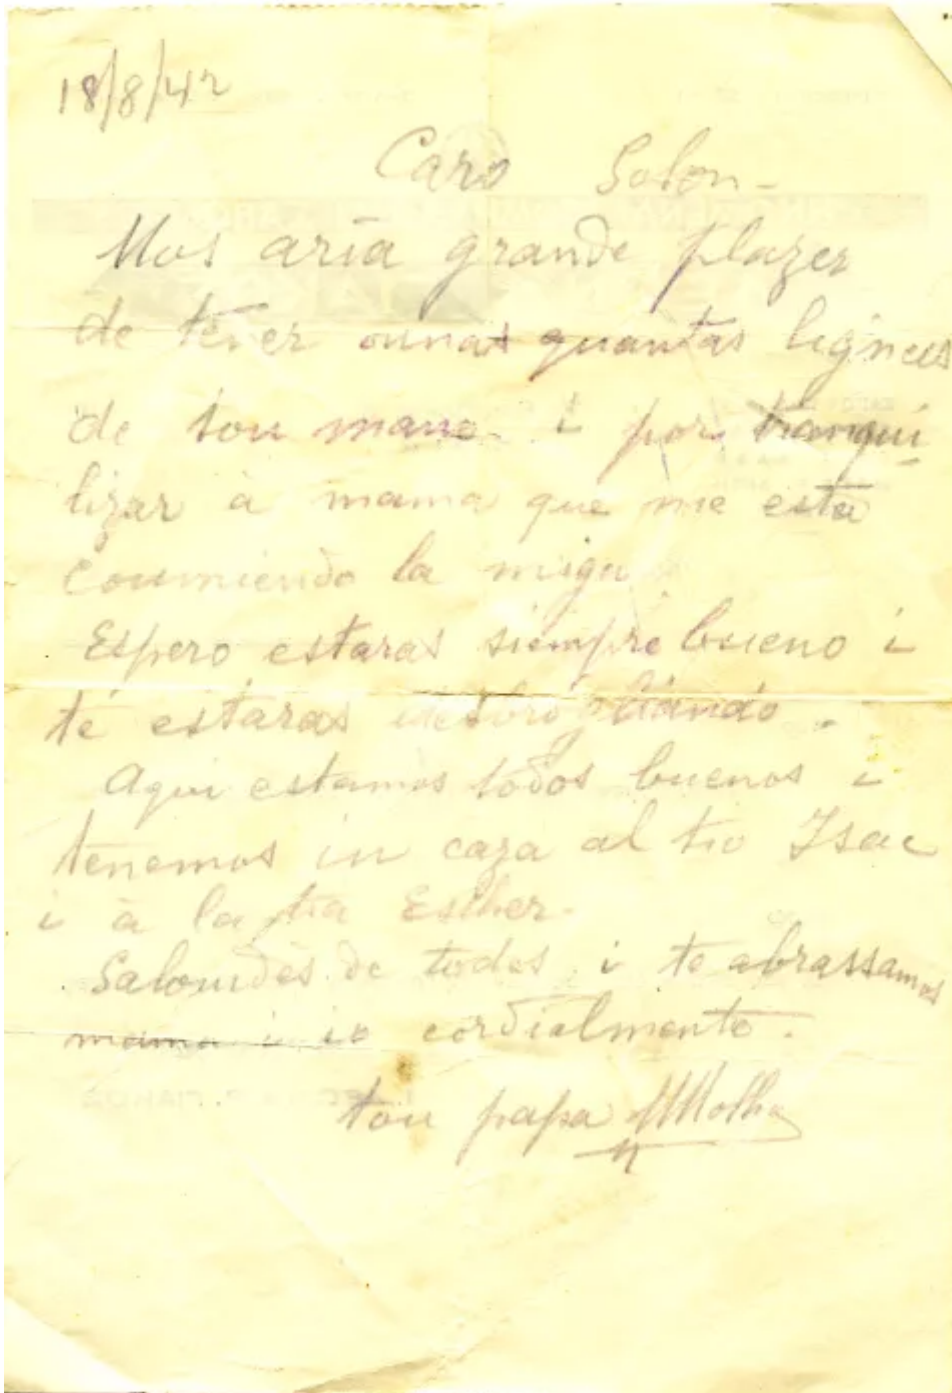 18/8/42
Caro Solon -
Mos aría grande plazer
de tener ounas quantas lignas
de tou mano i por tranqui
lizar à mama que me esta
coumiendo la miga
Espero estaras siempre bueno i
té estaras
Aqui estamos todos buenos i
tenemos in caza al tio Isac
i à la tia Esther.
Saloudès de todos i te abrassamos
mama i io cordialmente.
tou papa MMolho